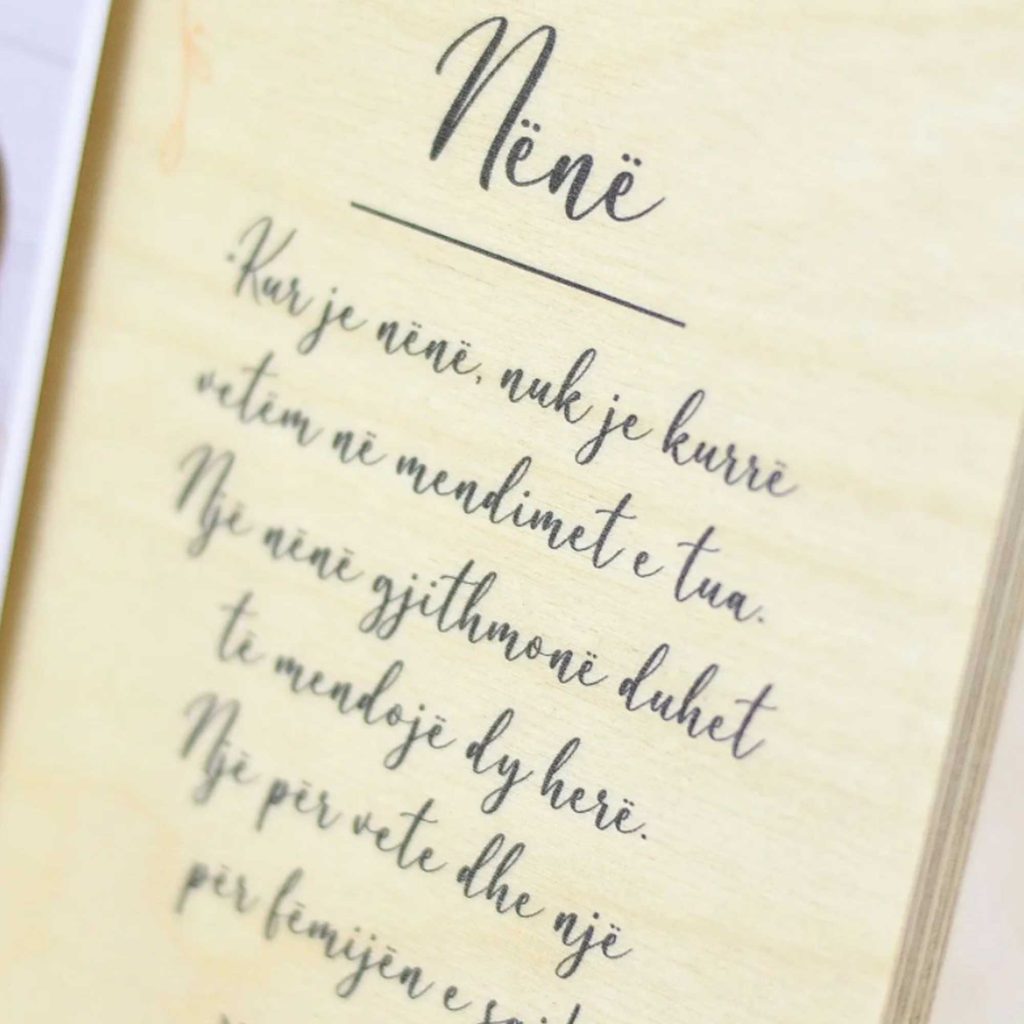 Nënë
Kur je nënë, nuk je kurrë
vetëm në mendimet e tua.
Një nënë gjithmonë duhet
të mendojë dy herë.
Një për vete dhe një
për fëmijën e